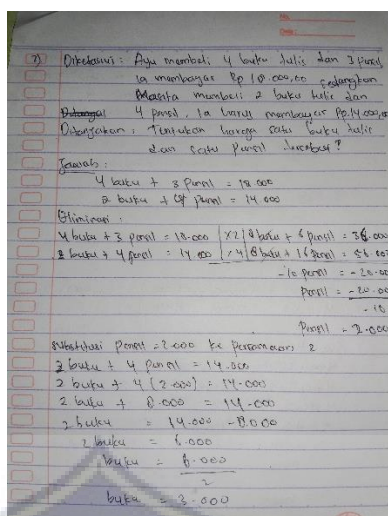 No.
Date:
7) Diketahui : Ayu membeli 4 buku tulis dan 3 pensil,
ia membayar Rp 18.000,00 sedangkan
Masita membeli 2 buku tulis dan
4 pensil, Ia harus membayar Rp.14.000,00
Ditanyakan : Tentukan harga satu buku tulis
dan satu Pensil tersebut?
Jawab :
4 buku + 3 Pensil = 18.000
2 buku + 4 Pensil = 14.000
Eliminasi :
4 buku + 3 pensil = 18.000 | x2 | 8 buku + 6 pensil = 36.000
2 buku + 4 pensil = 14.000 | x4 | 8 buku + 16 pensil = 56.000
-10 pensil = -20.000
pensil = -20.000
-10
Pensil = 2.000
Substitusi Pensil = 2.000 ke persamaan 2
2 buku + 4 Pensil = 14.000
2 buku + 4 (2.000) = 14.000
2 buku + 8.000 = 14.000
2 buku = 14.000 - 8.000
2 buku = 6.000
buku = 6.000
2
buku = 3.000